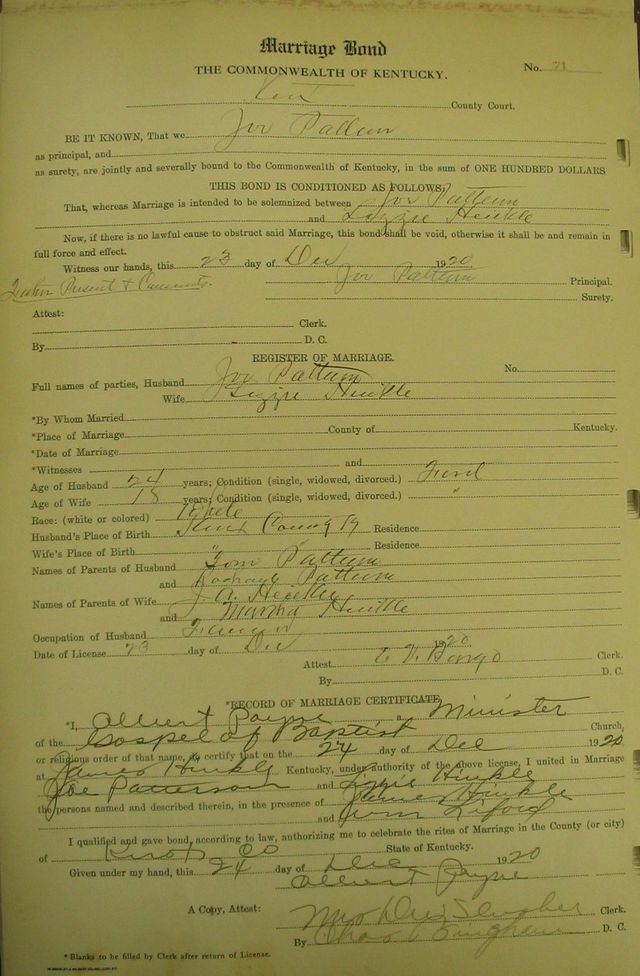 Marriage Bond
THE COMMONWEALTH OF KENTUCKY.
No. 71
County Court.
BE IT KNOWN, That we Joe Pattum
as principal, and
as surety, are jointly and severally bound to the Commonwealth of Kentucky, in the sum of ONE HUNDRED DOLLARS
THIS BOND IS CONDITIONED AS FOLLOWS:
That, whereas Marriage is intended to be solemnized between Joe Pattum
and Lizzie Heukle
Now, if there is no lawful cause to obstruct said Marriage, this bond shall be void, otherwise it shall be and remain in
full force and effect.
Witness our hands, this 23 day of Dec 1920
Joe Pattum Principal.
Present &
Surety.
Attest:
Clerk.
By D. C.
REGISTER OF MARRIAGE.
No.
Full names of parties, Husband Joe Pattum
Wife Lizzie Heukle
*By Whom Married
*Place of Marriage County of Kentucky.
*Date of Marriage
*Witnesses and
Age of Husband 24 years; Condition (single, widowed, divorced.)
Age of Wife 18 years; Condition (single, widowed, divorced.) "
Race: (white or colored) White
Husband's Place of Birth County Ky Residence
Wife's Place of Birth " " Residence
Names of Parents of Husband Tom Pattum
and Pattum
Names of Parents of Wife J. A. Heukle
and Martha Heukle
Occupation of Husband Farmer
Date of License 23 day of Dec 1920
Attest Clerk.
By D. C.
*RECORD OF MARRIAGE CERTIFICATE
*I, Albert Payne a Minister
of the Gospel of Baptist Church,
or religious order of that name, do certify that on the 24 day of Dec 1920
at James Hinkle Kentucky, under authority of the above license, I united in Marriage
Joe Patterson and Lizzie Hinkle
the persons named and described therein, in the presence of James Hinkle
and
I qualified and gave bond, according to law, authorizing me to celebrate the rites of Marriage in the County (or city)
of Knox Co State of Kentucky.
Given under my hand, this 24 day of Dec 1920
Albert Payne
A Copy, Attest: Clerk.
By Bingham D. C.
* Blanks to be filled by Clerk after return of License.